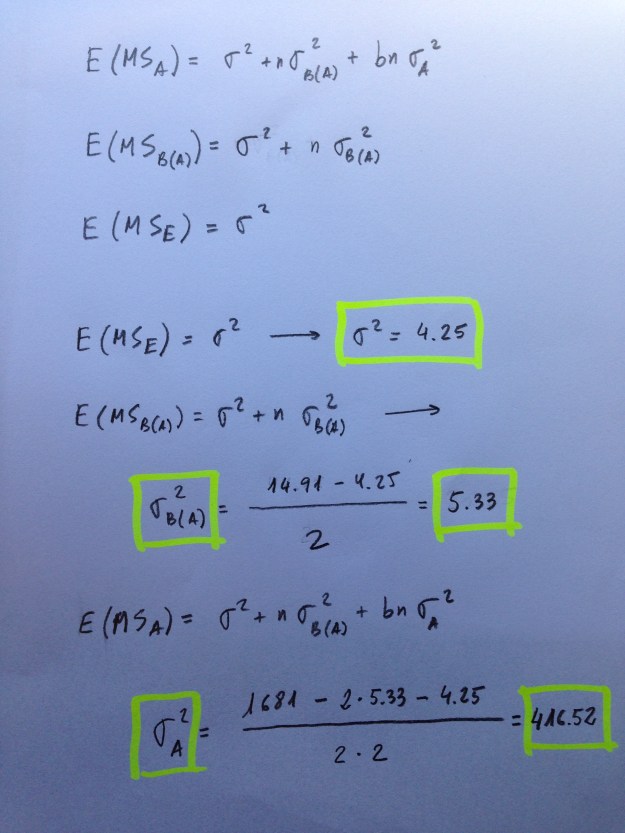 E(MS_A) = σ² + nσ²_B(A) + bn σ_A²
E(MS_B(A)) = σ² + n σ²_B(A)
E(MS_E) = σ²
E(MS_E) = σ² → σ² = 4.25
E(MS_B(A)) = σ² + n σ²_B(A) →
σ²_B(A) = (14.91 - 4.25) / 2 = 5.33
E(MS_A) = σ² + n σ²_B(A) + bn σ_A²
σ²_A = (1681 - 2·5.33 - 4.25) / (2·2) = 416.52